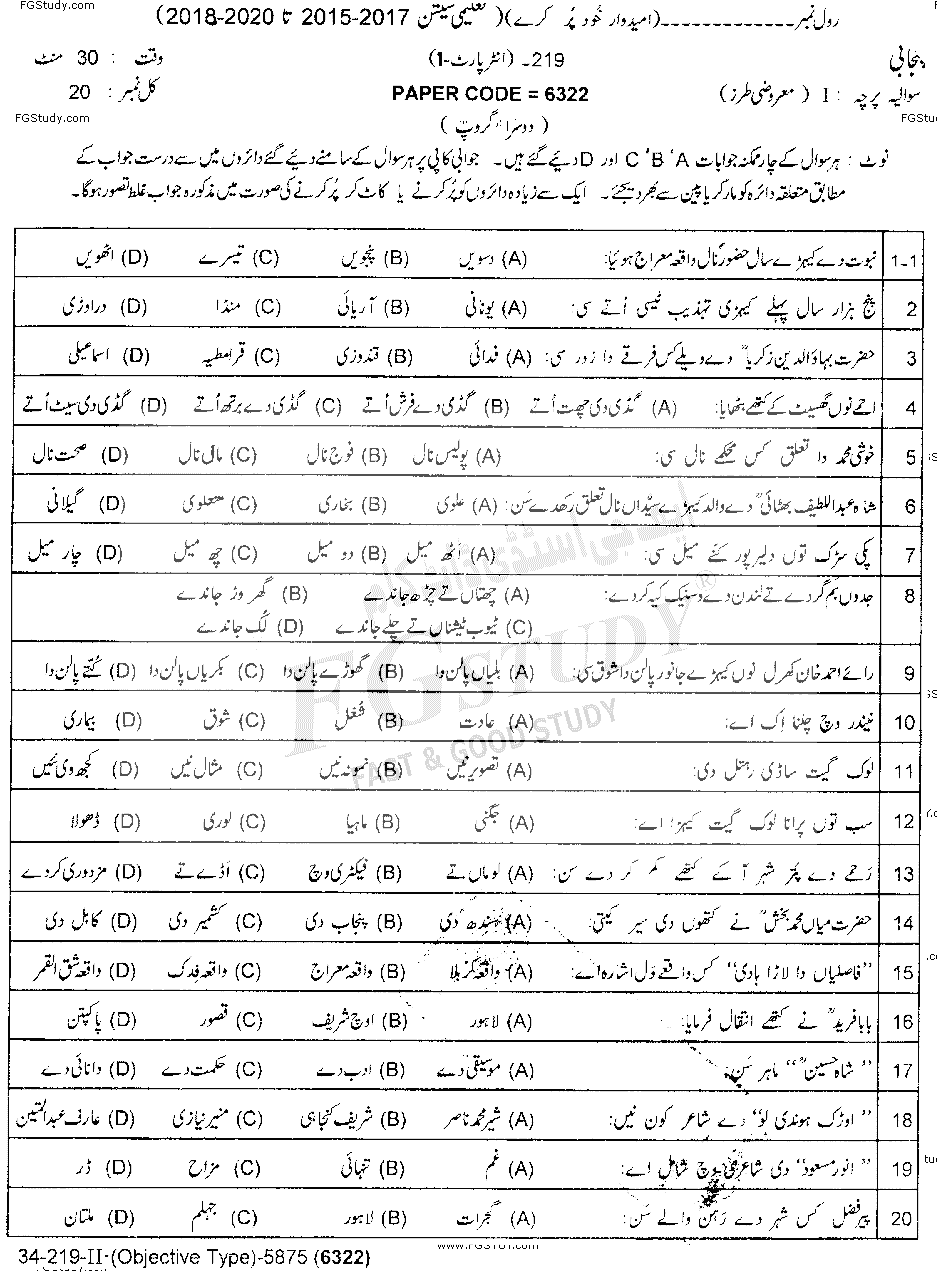 FGStudy.com
رول نمبر------------(امیدوار خُود پُر کرے)( تعلیمی سیشن 2017-2015 تا 2020-2018)
پنجابی 219- (انٹر پارٹ-1) وقت : 30 منٹ
سوالیہ پرچہ : I (معروضی طرز) PAPER CODE = 6322 کل نمبر : 20
FGStudy.com (دوسرا گروپ) FGStudy.com
نوٹ : ہر سوال کے چار ممکنہ جوابات A ‘B ‘C اور D دیئے گئے ہیں۔ جوابی کاپی پر ہر سوال کے سامنے دیئے گئے دائروں میں سے درست جواب کے
مطابق متعلقہ دائرہ کو مارکر یا پین سے بھر دیجئے۔ ایک سے زیادہ دائروں کو پُر کرنے یا کاٹ کر پُر کرنے کی صورت میں مذکورہ جواب غلط تصور ہوگا۔
1-1 نبوت دے کیہڑے سال حضورؐ نال واقعہ معراج ہوئیا: (A) دسویں (B) پنجویں (C) تیسرے (D) اٹھویں
2 پنج ہزار سال پہلے کیہڑی تہذیب ٹیسی اُتے سی: (A) یونانی (B) آریائی (C) منڈا (D) دراوڑی
3 حضرت بہاؤالدین زکریاؒ دے ویلے کس فرقے دا زور سی: (A) فدائی (B) قندوزی (C) قرامطیہ (D) اسماعیلی
4 احمے نوں گھسیٹ کے کتھے بٹھایا: (A) گڈی دی چھت اُتے (B) گڈی دے فرش اُتے (C) گڈی دے برتھ اُتے (D) گڈی دی سیٹ اُتے
5 خوشی محمد دا تعلق کس محکمے نال سی: (A) پولیس نال (B) فوج نال (C) مال نال (D) صحت نال
6 شاہ عبداللطیف بھٹائیؒ دے والد کیہڑے سیّداں نال تعلق رکھدے سَن: (A) علوی (B) بخاری (C) متعلوی (D) گیلانی
7 پکی سڑک توں دلیر پور کنے میل سی: (A) اَٹھ میل (B) دو میل (C) چھ میل (D) چار میل
8 جدوں بم گردے تے لندن دے وسنیک کیہ کردے: (A) چھتاں تے چڑھ جاندے (B) گھر وڑ جاندے
(C) ٹیوب ٹیشناں تے چلے جاندے (D) لُک جاندے
9 رائے احمد خان کھرل نوں کیہڑے جانور پالن دا شوق سی: (A) بلیاں پالن دا (B) گھوڑے پالن دا (C) بکریاں پالن دا (D) کُتّے پالن دا
10 نیندر وچ چلنا اِک اے: (A) عادت (B) شغل (C) شوق (D) بیماری
11 لوک گیت ساڈی رہتل دی: (A) تصویر نیں (B) نمونہ نیں (C) مثال نیں (D) کجھ وی نہیں
12 سب توں پرانا لوک گیت کیہڑا اے: (A) جگنی (B) ماہیا (C) لوری (D) ڈھولا
13 رَحمے دے پتر شہر آ کے کتھے کم کر دے سن: (A) لوماں تے (B) فیکٹری وچ (C) اَڈے تے (D) مزدوری کردے
14 حضرت میاں محمد بخشؒ نے کتھوں دی سیر کیتی: (A) سندھ دی (B) پنجاب دی (C) کشمیر دی (D) کابل دی
15 ”فاصلیاں دا لاڑا ہادی“ کس واقعے وَل اشارہ اے: (A) واقعہ کربلا (B) واقعہ معراج (C) واقعہ فدک (D) واقعہ شق القمر
16 بابا فریدؒ نے کتھے انتقال فرمایا: (A) لاہور (B) اوچ شریف (C) قصور (D) پاکپتن
17 ”شاہ حسینؒ“ ماہر سَن: (A) موسیقی دے (B) ادب دے (C) حکمت دے (D) دانائی دے
18 ”اوڑک ہوندی لو“ دے شاعر کون نیں: (A) شیر محمد ناصر (B) شریف کنجاہی (C) منیر نیازی (D) عارف عبدالمتین
19 ”انور مسعود“ دی شاعری وچ شامل اے: (A) غم (B) تنہائی (C) مزاح (D) ڈر
20 پیر فضل کس شہر دے رَہن والے سَن: (A) گجرات (B) لاہور (C) جہلم (D) ملتان
www.FGSTUDY.com
34-219-II-(Objective Type)-5875 (6322)
FG STUDY
FAST & GOOD STUDY